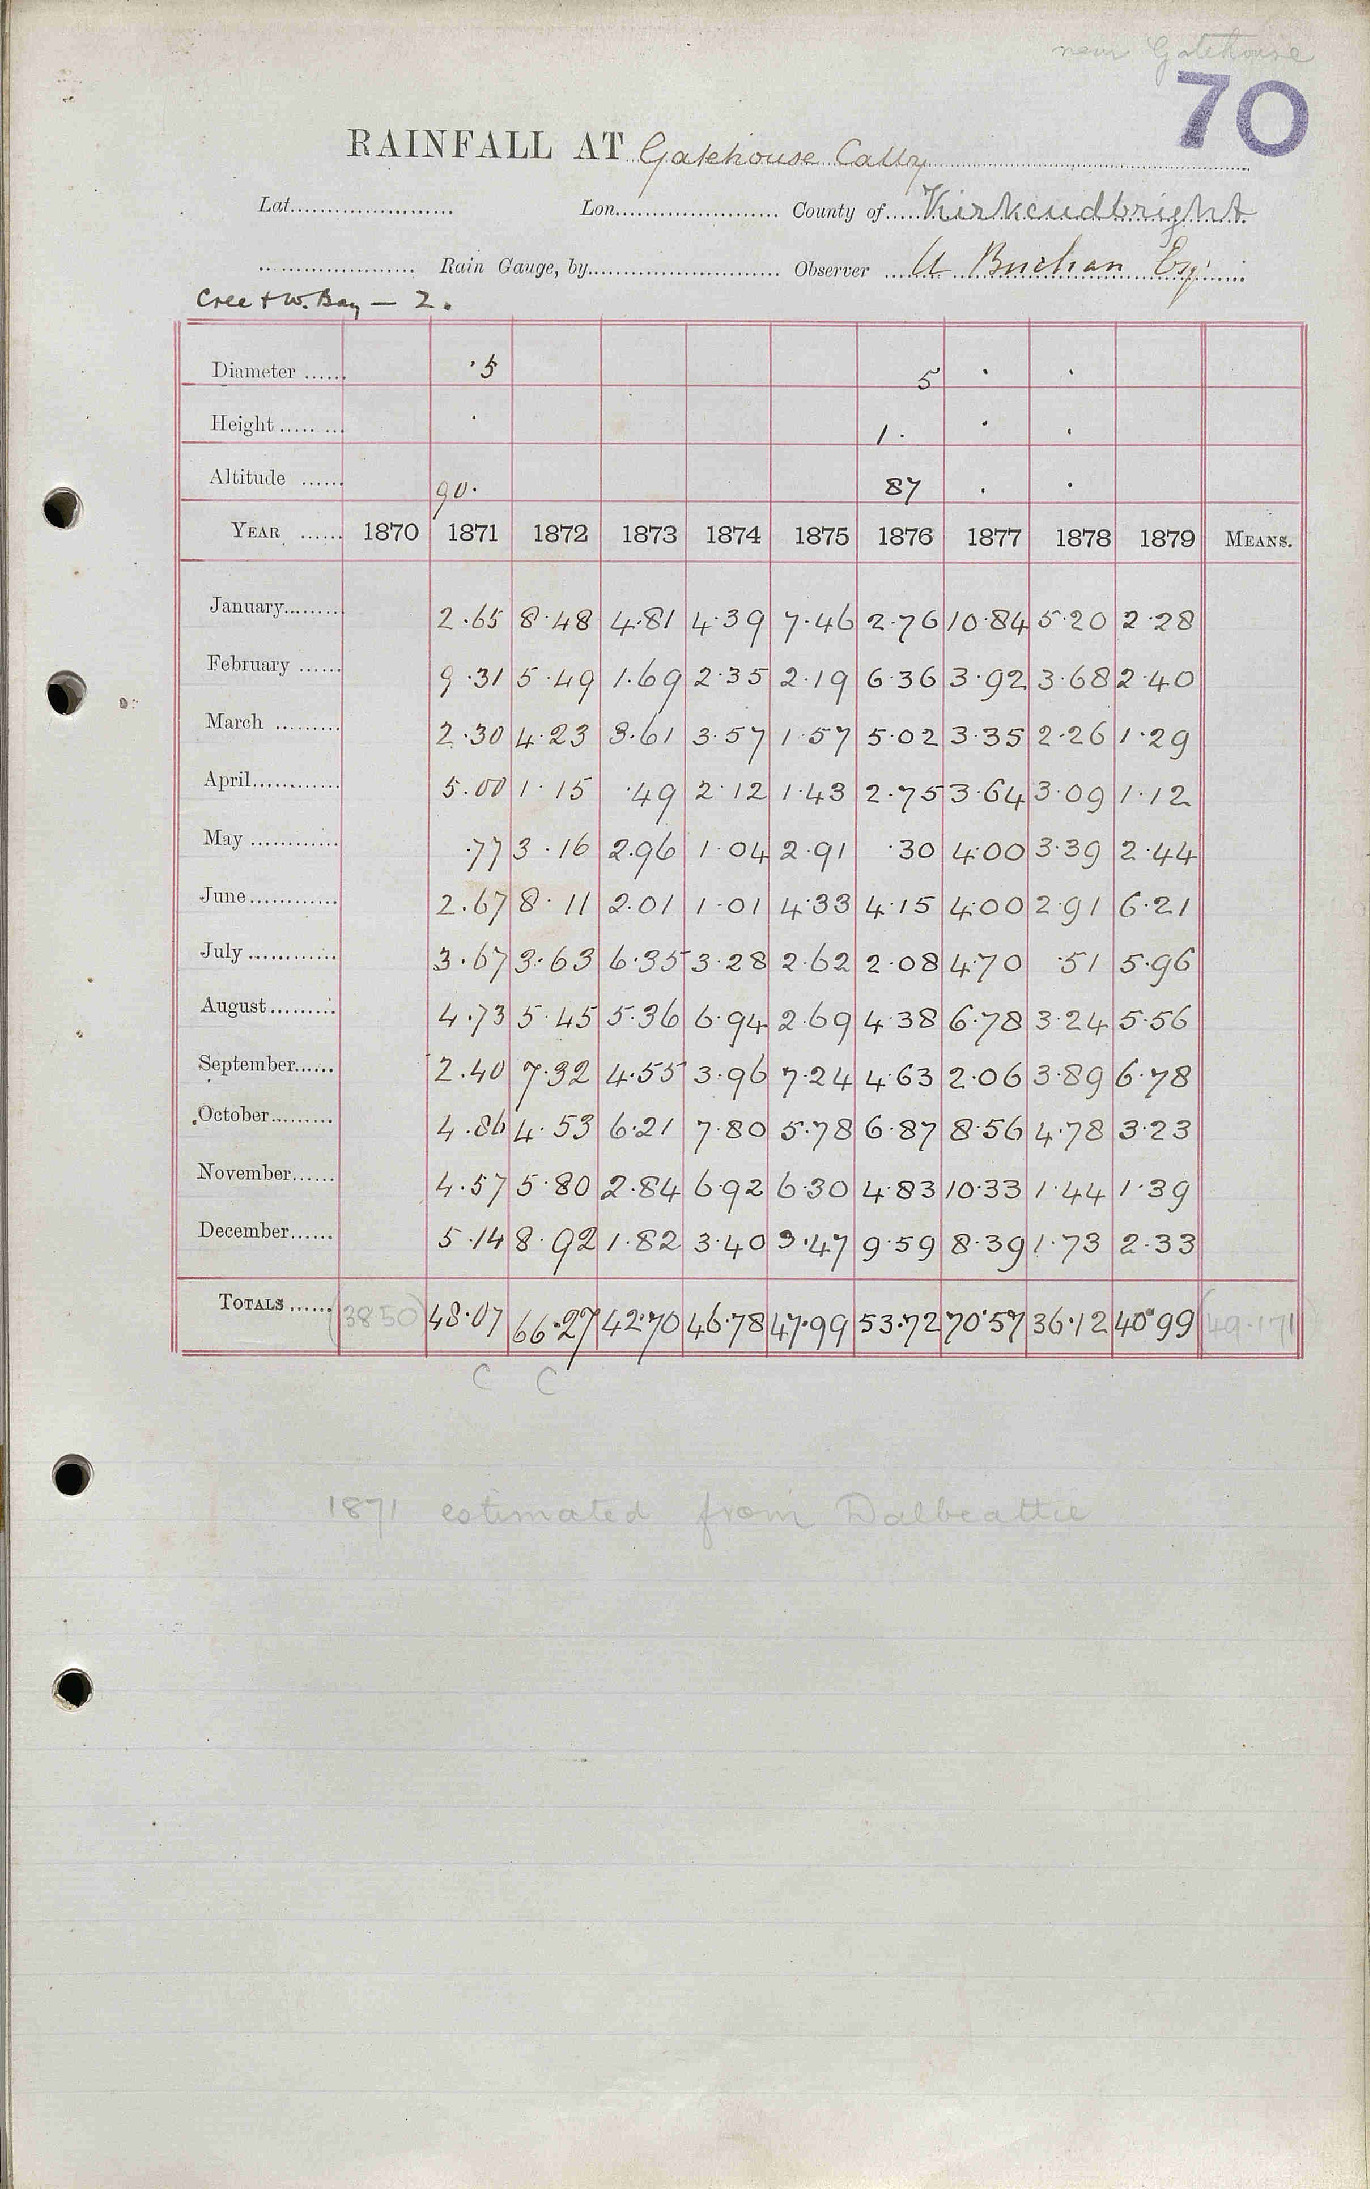 near Gatehouse
70
RAINFALL AT Gatehouse Cally
Lat. Lon. County of Kirkcudbright
Rain Gauge, by Observer A Buchan Esq
Cree & W. Bay — 2.
Diameter ...... ·5 5 · ·
Height ........ · 1· · ·
Altitude ...... 90· 87 · ·
YEAR ...... 1870 1871 1872 1873 1874 1875 1876 1877 1878 1879 MEANS.
January 2.65 8.48 4.81 4.39 7.46 2.76 10.84 5.20 2.28
February 9.31 5.49 1.69 2.35 2.19 6.36 3.92 3.68 2.40
March 2.30 4.23 3.61 3.57 1.57 5.02 3.35 2.26 1.29
April 5.00 1.15 .49 2.12 1.43 2.75 3.64 3.09 1.12
May .77 3.16 2.96 1.04 2.91 .30 4.00 3.39 2.44
June 2.67 8.11 2.01 1.01 4.33 4.15 4.00 2.91 6.21
July 3.67 3.63 6.35 3.28 2.62 2.08 4.70 .51 5.96
August 4.73 5.45 5.36 6.94 2.69 4.38 6.78 3.24 5.56
September 2.40 7.32 4.55 3.96 7.24 4.63 2.06 3.89 6.78
October 4.86 4.53 6.21 7.80 5.78 6.87 8.56 4.78 3.23
November 4.57 5.80 2.84 6.92 6.30 4.83 10.33 1.44 1.39
December 5.14 8.92 1.82 3.40 3.47 9.59 8.39 1.73 2.33
TOTALS ...... (3850) 48.07 66.27 42.70 46.78 47.99 53.72 70.57 36.12 40.99 (49.171)
C C
1871 estimated from Dalbeattie